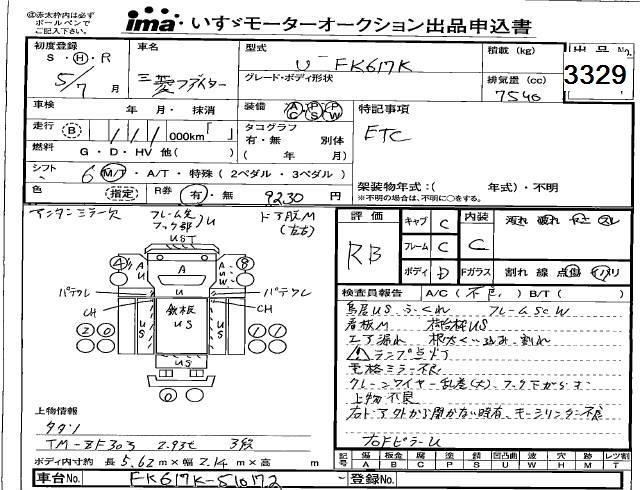 ②赤太枠内は必ずボールペンでご記入下さい
ima いすゞモーターオークション出品申込書
初度登録 S・H・R 5/7 月
車名 三菱ファイター
型式 U-FK617K
グレード・ボディ形状
積載 (kg)
排気量 (cc) 7540
出品No.
3329
車検 年 月・抹消
装備 AC PS PW
特記事項
ETC
走行 B 000km「 」
タコグラフ 有・無 別体
( 年 月)
燃料 G・D・HV 他( )
シフト 6 M/T・A/T・特殊(2ペダル・3ペダル)
架装物年式:( 年式)・不明
※不明の場合は、不明に○をする。
色 指定 R券 有・無 9230 円
インタンミラー欠 フレーム先フック部U ドア段M(左右)
UST
4 A U A A U W 8
パテクレ U パテクレ
CH CH
鉄板 US
US US
US
2 0 1 1
0
評価 RB
キャブ C
フレーム C
ボディ D
内装 C
Fガラス
汚れ 破れ ヤニ スレ
割れ 線 点傷 イバリ
検査員報告 A/C(不良) B/T( )
鳥居US ふくれ フレームSCW
看板M
エア漏れ 根太くい込み、割れ
ランプ点灯
左格ミラー不良
クレーンワイヤー乱巻(大)、フック下がらず
上物不良
右ドア外から開かない時有、モーラリンター不良
右FピラーU
上物情報
タダノ
TM-ZF303 2.93t 3段
ボディ内寸約 長 5.62 m×幅 2.14 m×高 m
記号 傷 板金 腐 塗 錆 凹 凸曲 波 穴 跡 レツ割
A B C P S U W H M T
車台No. FK617K-510172
登録No.